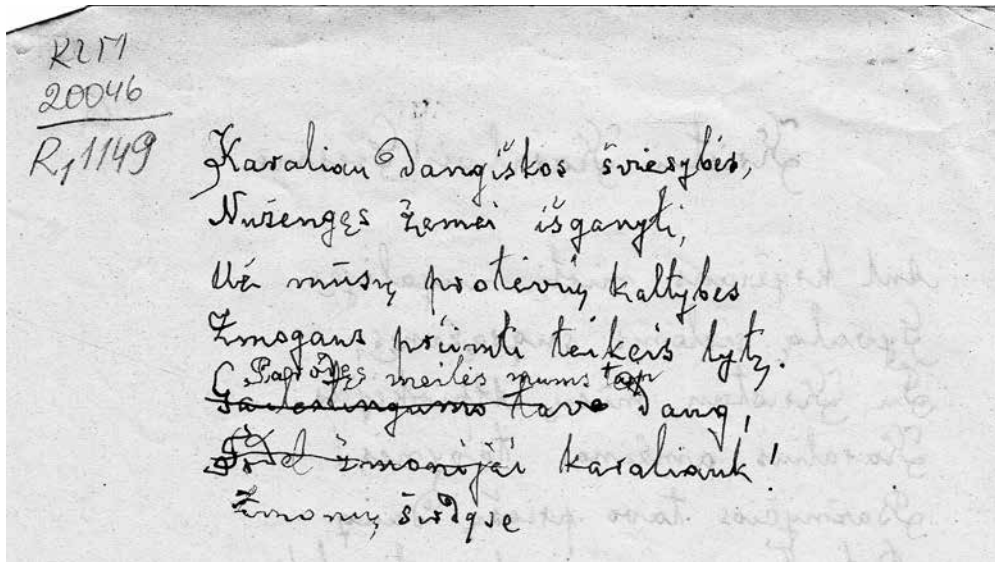 KLM
20046
R,1149
Karaliau dangiškos šviesybės,
Nužengęs žemei išganyti,
Už mūsų protėvių kaltybes
Žmogaus priimti teikeis lytį.
Parodęs meilės mums taip
Gailestingumo tavo daug,
žmonijai karaliauk!
Žmonių širdyse